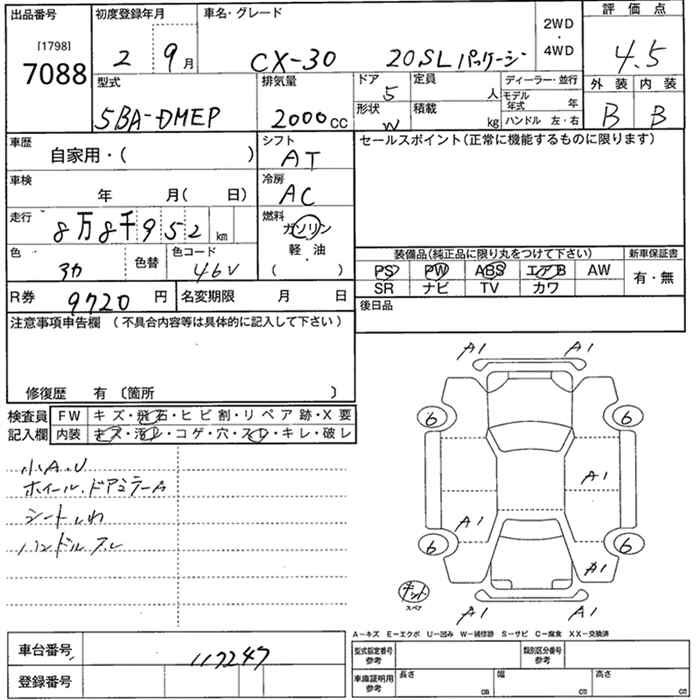 出品番号 初度登録年月 車名・グレード 2WD・4WD 評価点
[1798] 7088 2 9月 CX-30 20SLパッケージ 4.5
型式 排気量 ドア 定員 ディーラー・並行 外装 内装
5BA-DMEP 2000cc 5 人 モデル年式 年 B B
形状 積載 ハンドル 左・右
W kg
車歴 シフト セールスポイント(正常に機能するものに限ります)
自家用・( ) AT
車検 冷房
年 月( 日) AC
走行 燃料
8万8千952km ガソリン
軽・油
( )
色 色替 色コード
3カ 46V
装備品(純正品に限り丸をつけて下さい) 新車保証書
PS PW ABS エアB AW 有・無
SR ナビ TV カワ
R券 9720円 名変期限 月 日 後日品
注意事項申告欄(不具合内容等は具体的に記入して下さい)
修復歴 有〔箇所 〕
検査員記入欄
FW キズ・飛石・ヒビ割・リペア跡・X要
内装 キズ・汚レ・コゲ・穴・スレ・キレ・破レ
小A.U
ホイール.ドアミラーA
シートしわ
ハンドルスレ
A1 A1
6 6
A1
A1
6 6
A1
スペア
A1 A1
A-キズ E-エクボ U-凹み W-補修跡 S-サビ C-腐食 XX-交換済
車台番号 117247
型式指定番号 参考 類別区分番号 参考
登録番号
車庫証明用 参考 長さ cm 幅 cm 高さ cm